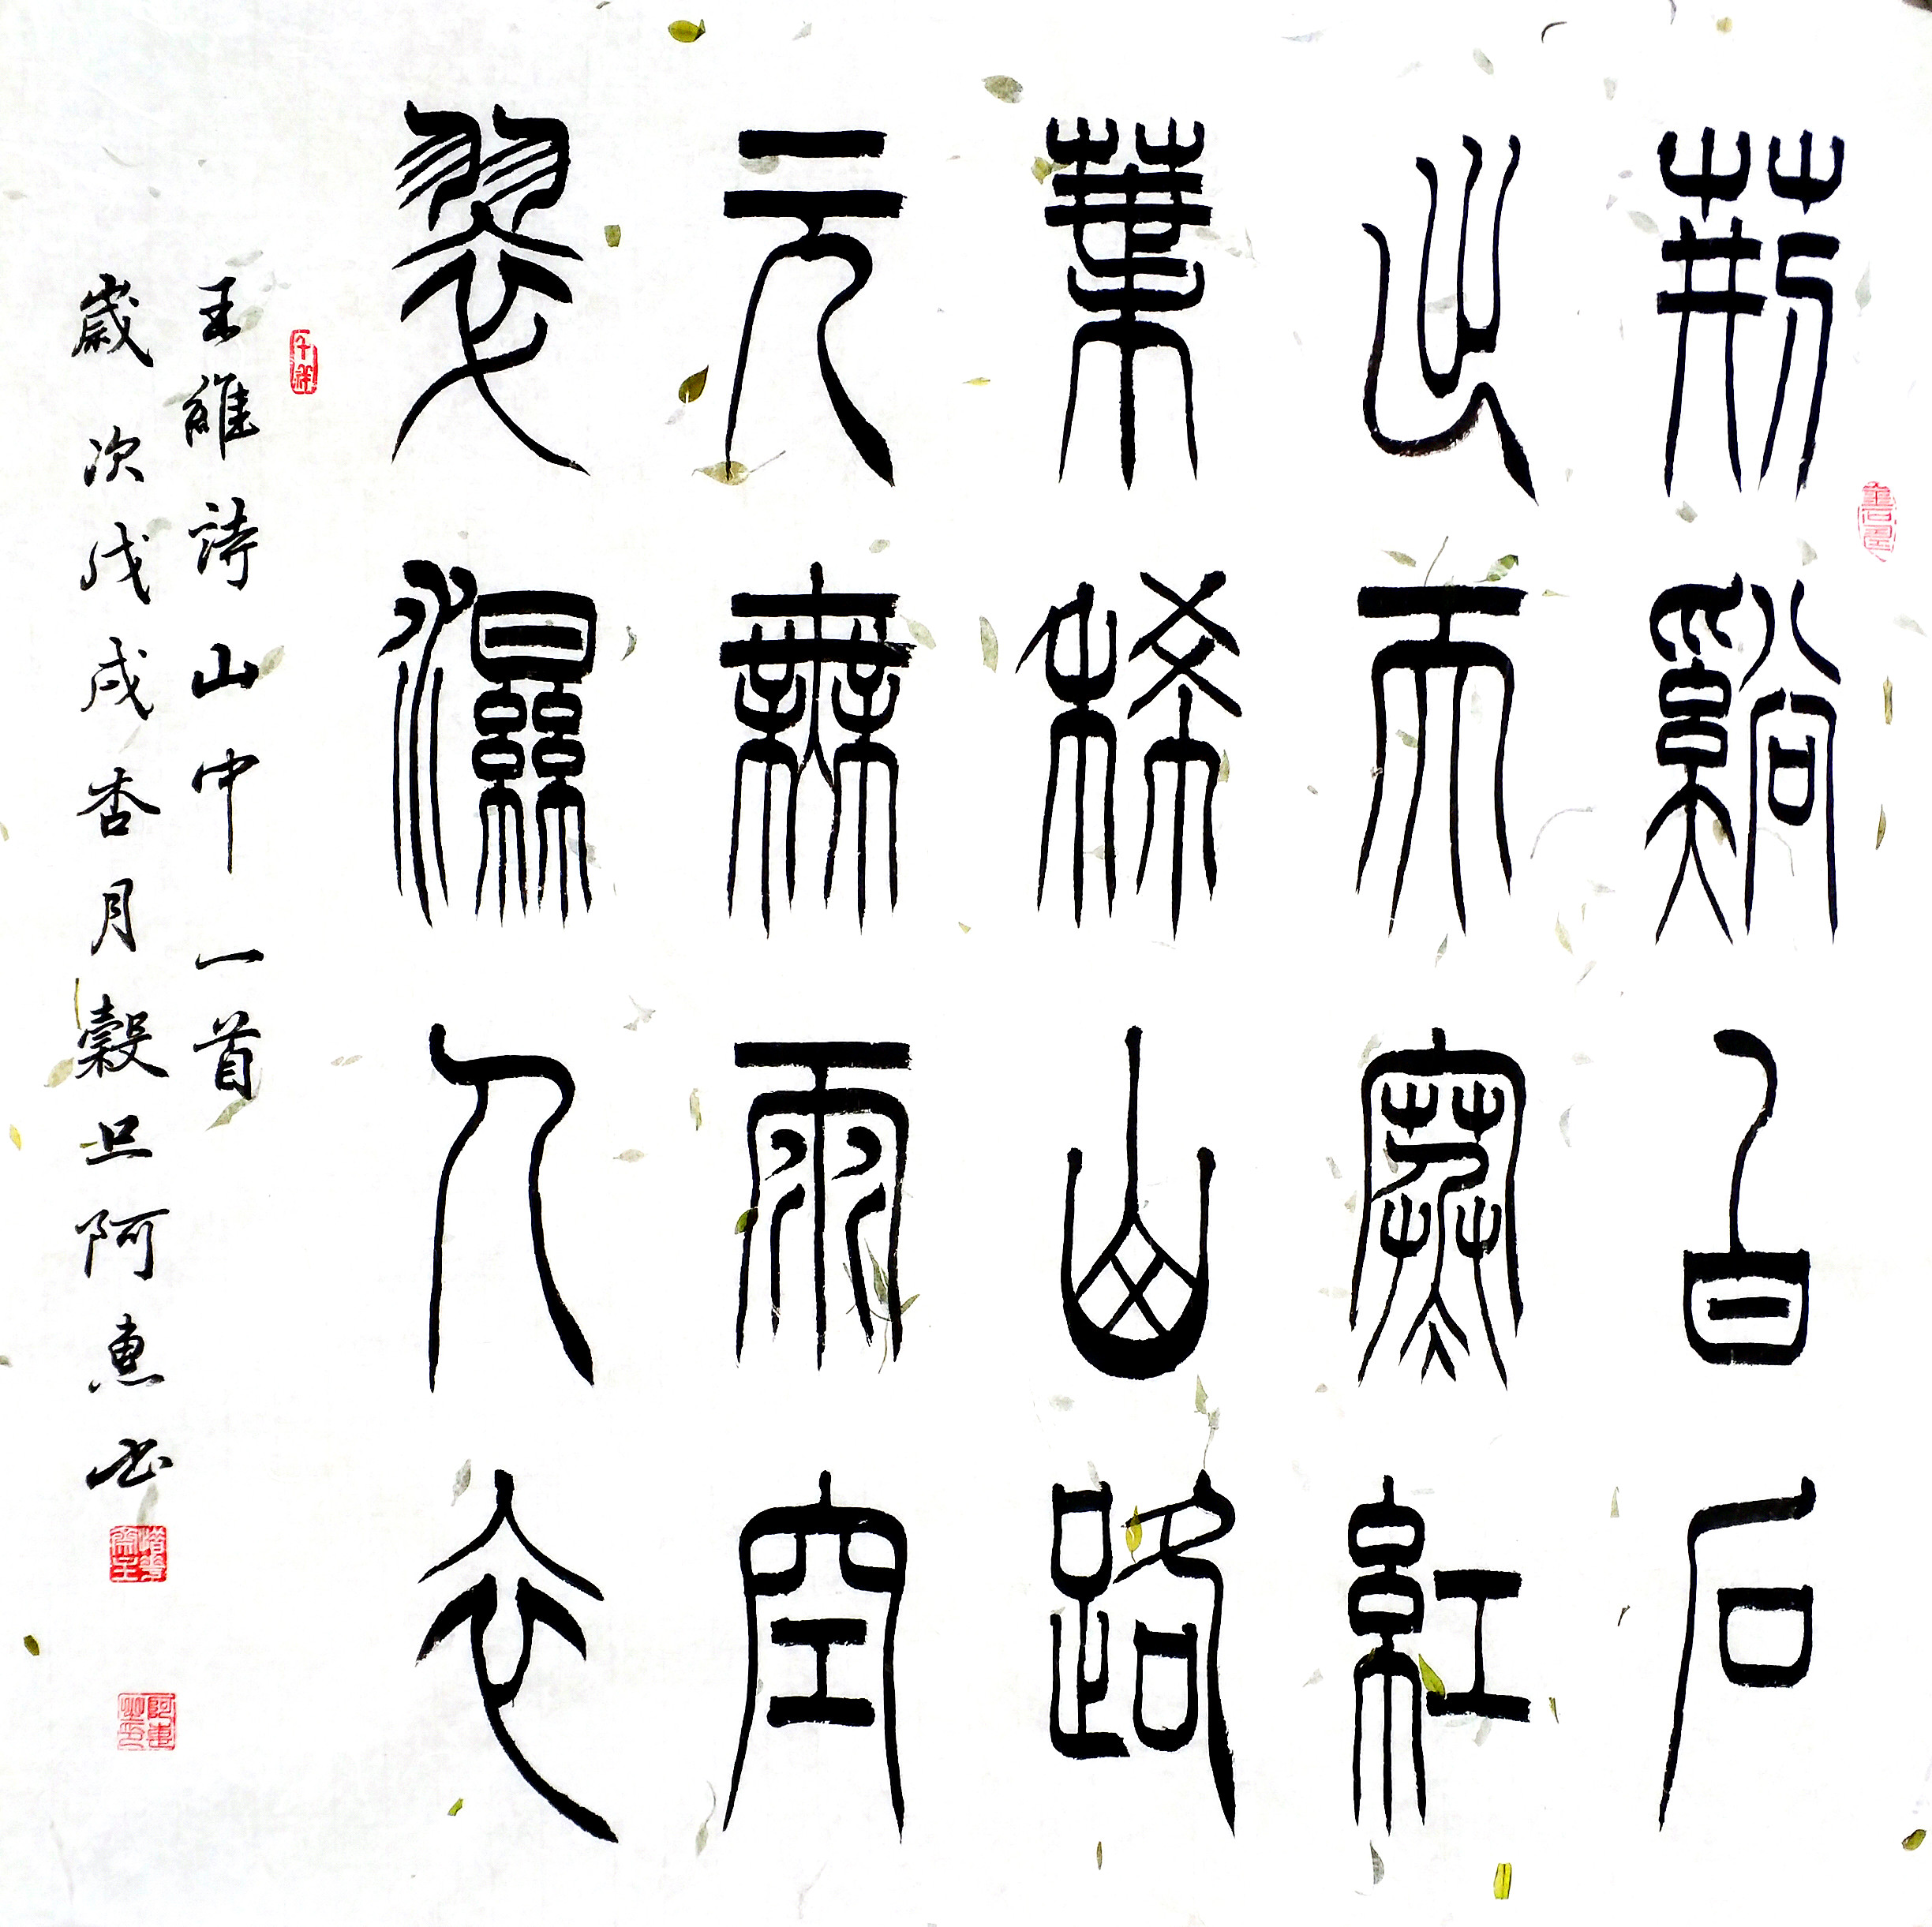 荊谿白石
出天寒紅
葉稀山路
元無雨空
翠濕人衣
王維詩山中一首
歲次戊戌杏月穀旦阿惠书